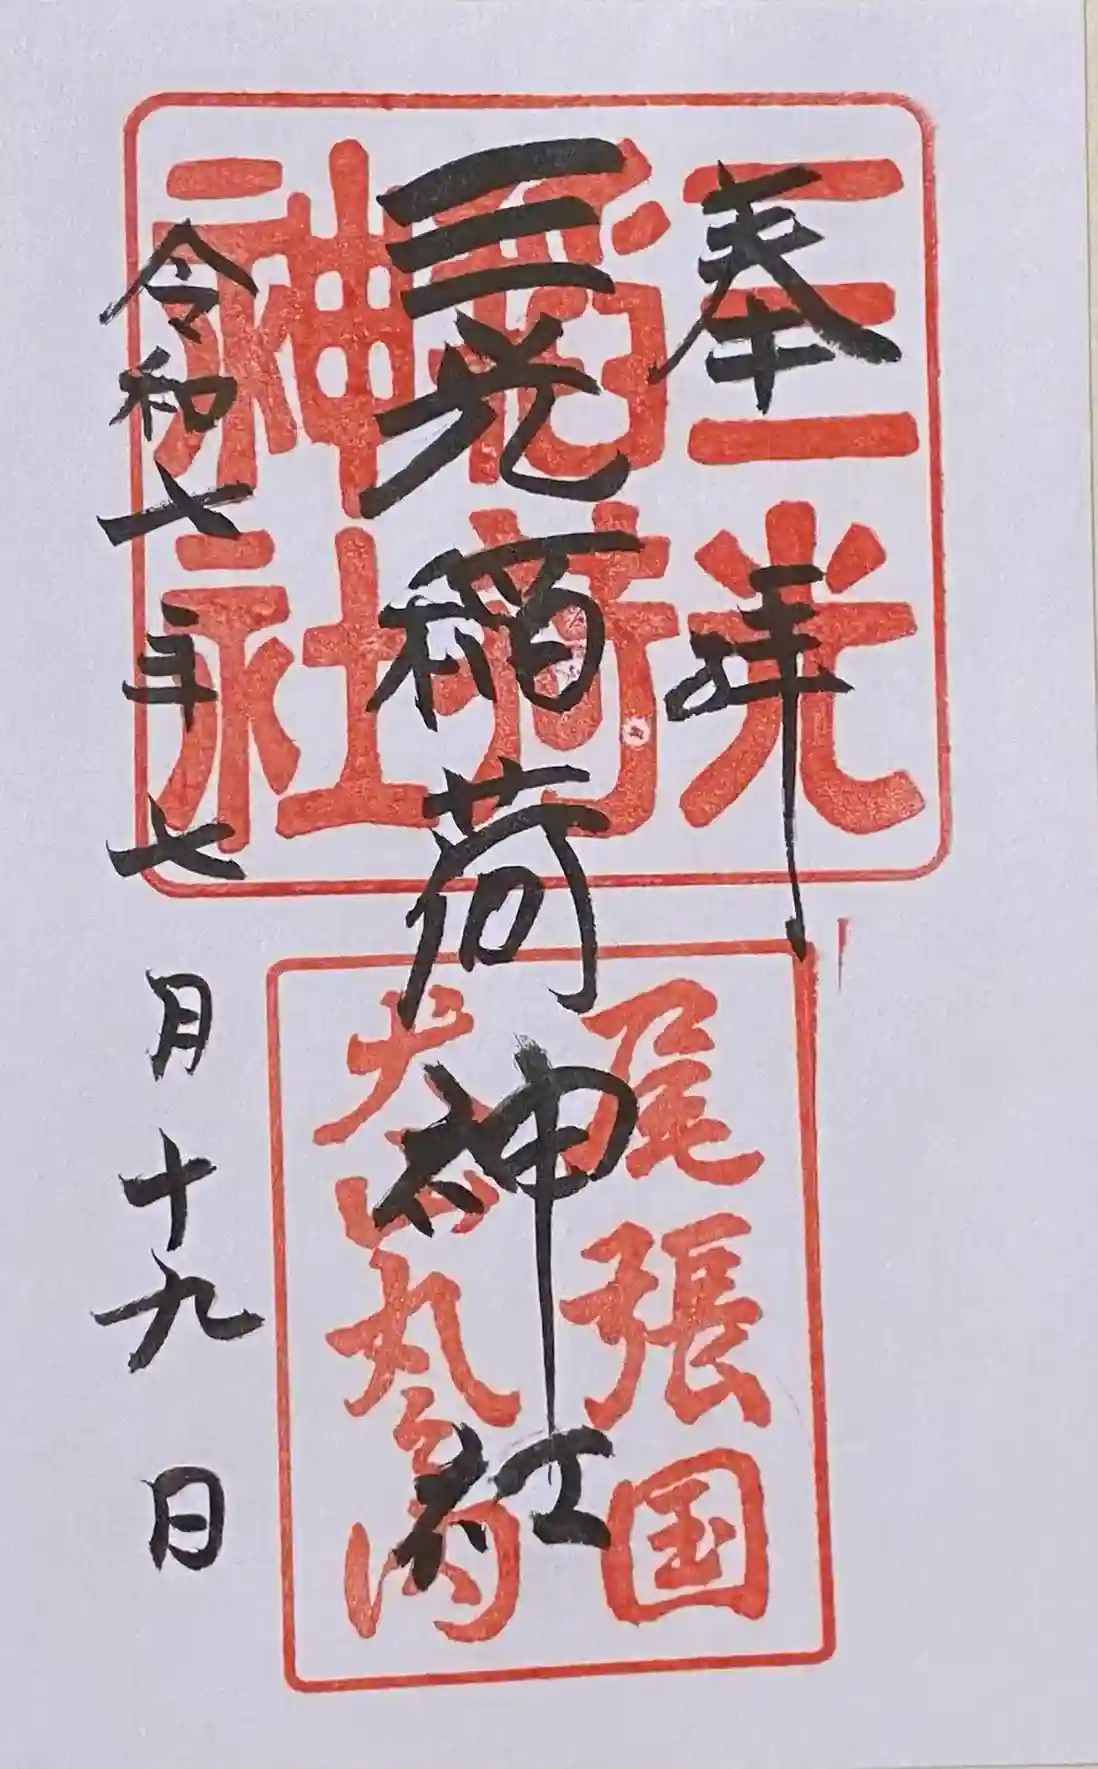 奉拝
三光稲荷神社
令和七年七月十九日
三光
稲荷
神社
尾張国
犬山丸之内